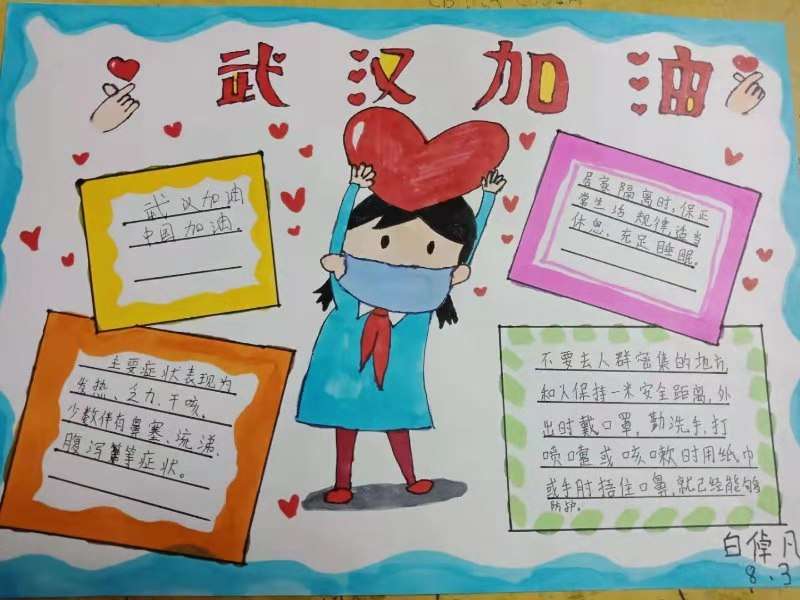 武汉加油
武汉加油
中国加油.
居家隔离时,保正
常生活规律,适当
休息、充足睡眠。
主要症状表现为
发热、乏力、干咳、
少数伴有鼻塞、流涕、
腹泻等症状。
不要去人群密集的地方,
和人保持一米安全距离,外
出时戴口罩,勤洗手,打
喷嚏或咳嗽时用纸巾
或手肘捂住口鼻,就已经能够
防护。
白倬凡
8.3